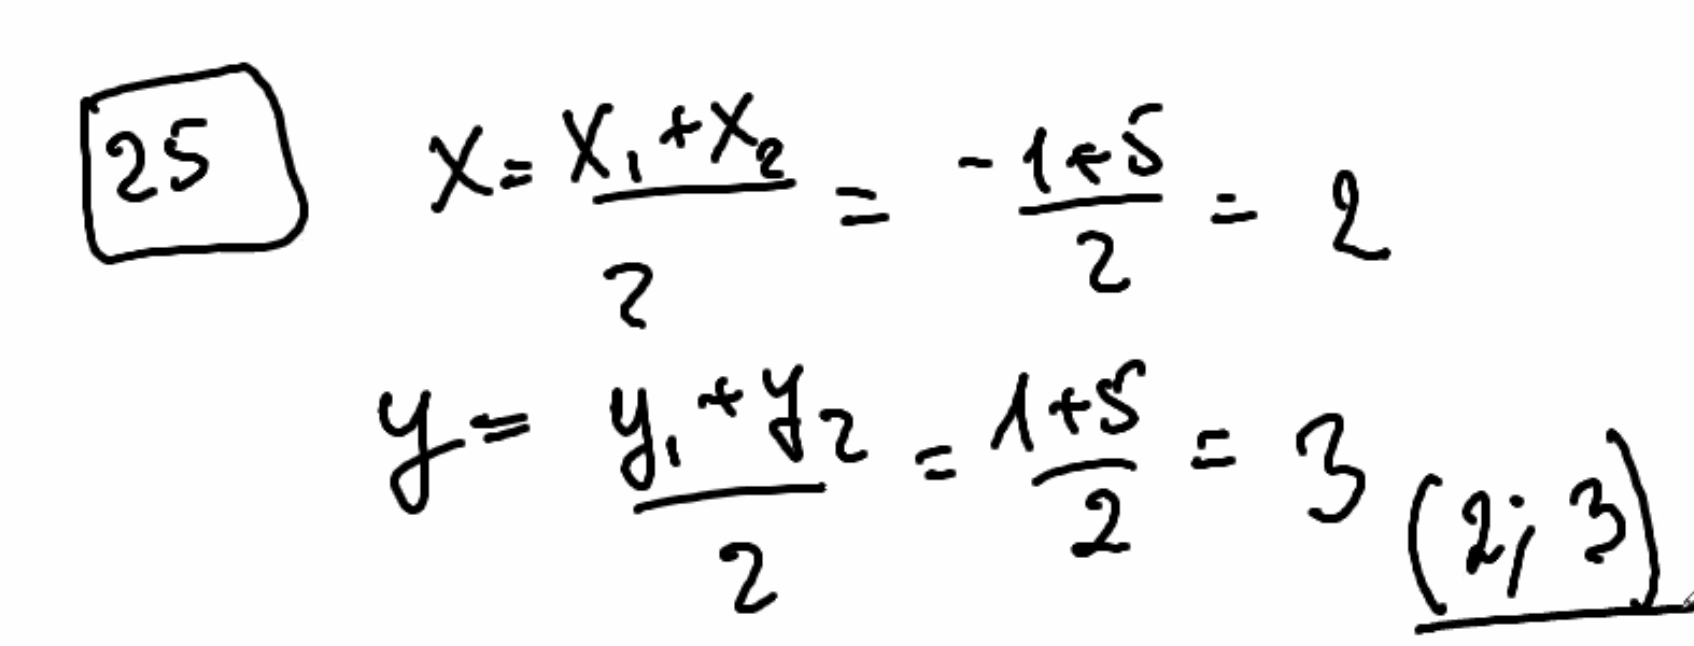 25 x = (x₁ + x₂)/2 = (-1+5)/2 = 2
y = (y₁ + y₂)/2 = (1+5)/2 = 3 (2; 3)